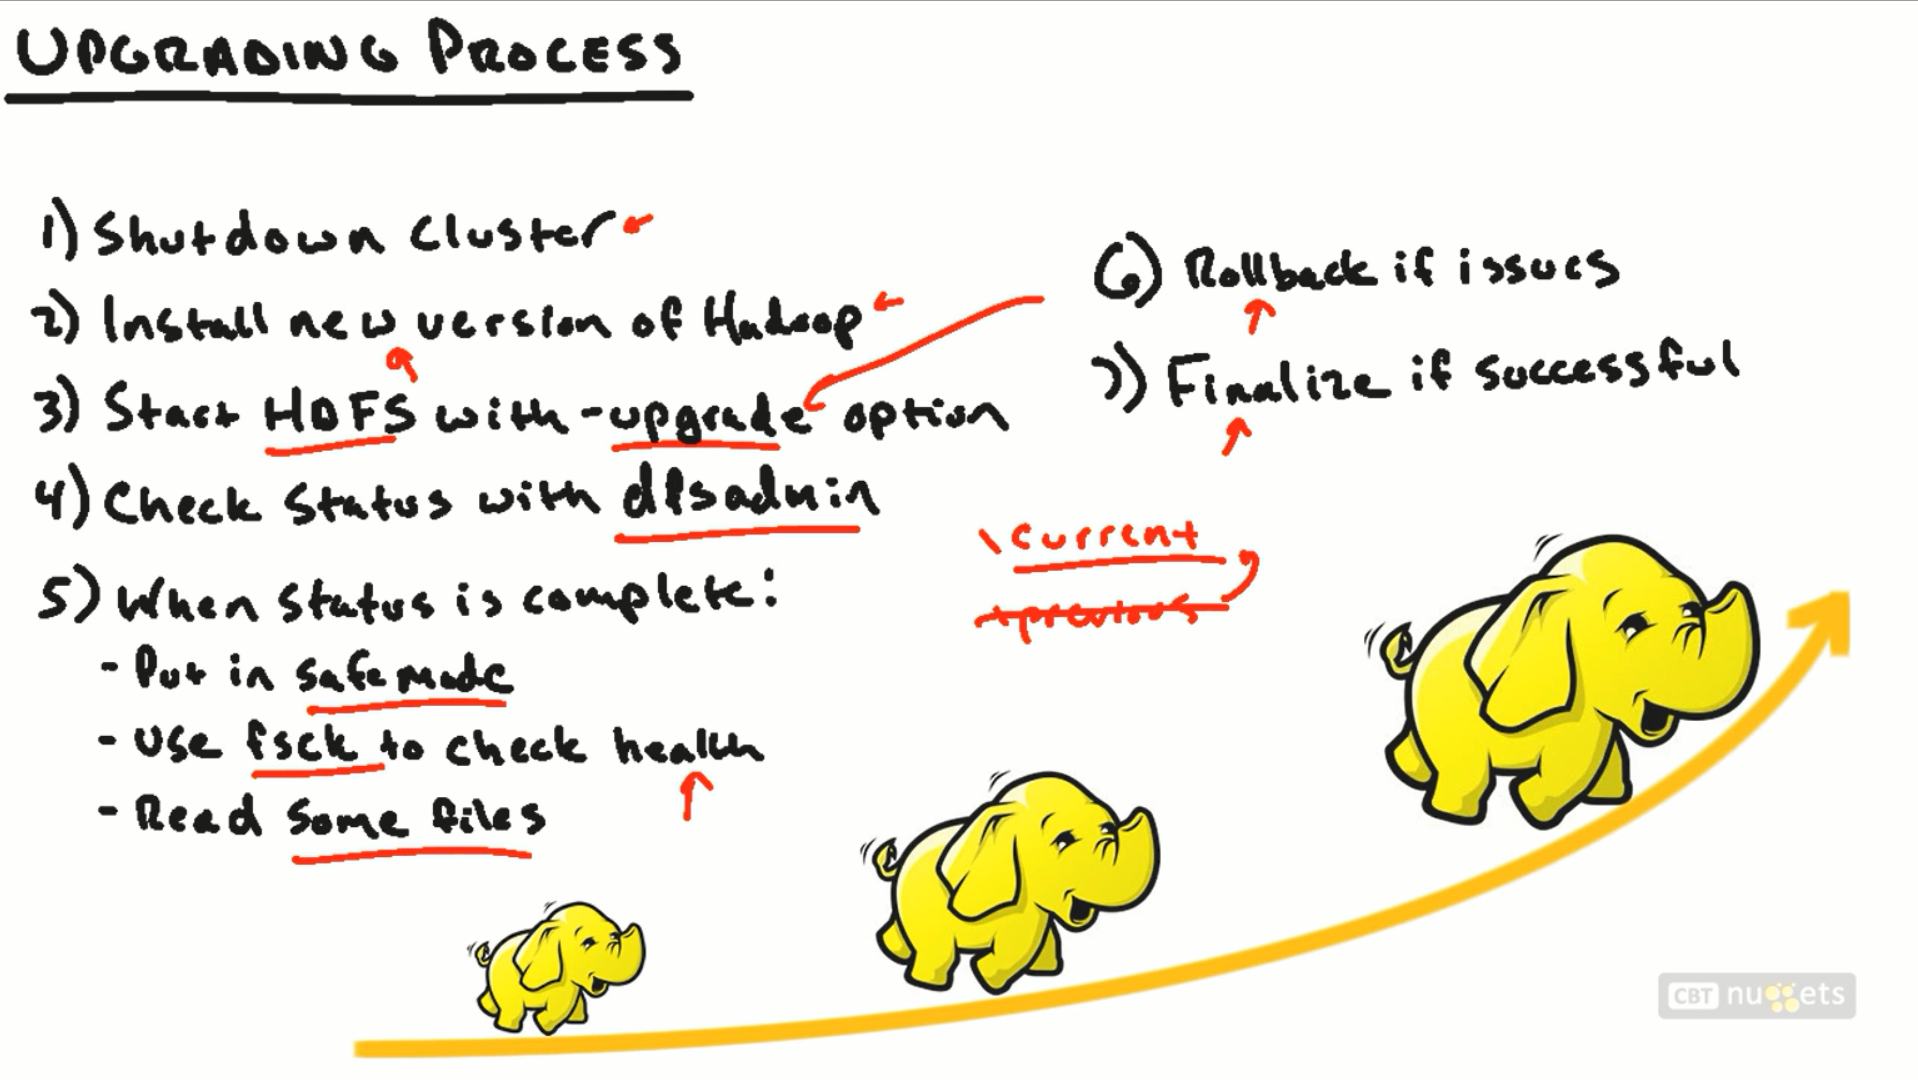 UPGRADING PROCESS
1) Shutdown Cluster
2) Install new version of Hadoop
3) Start HDFS with -upgrade option
4) Check Status with dfsadmin
5) When Status is complete:
- Put in safemode
- Use fsck to check health
- Read some files
6) Rollback if issues
7) Finalize if successful
\current
previous
CBT nuggets